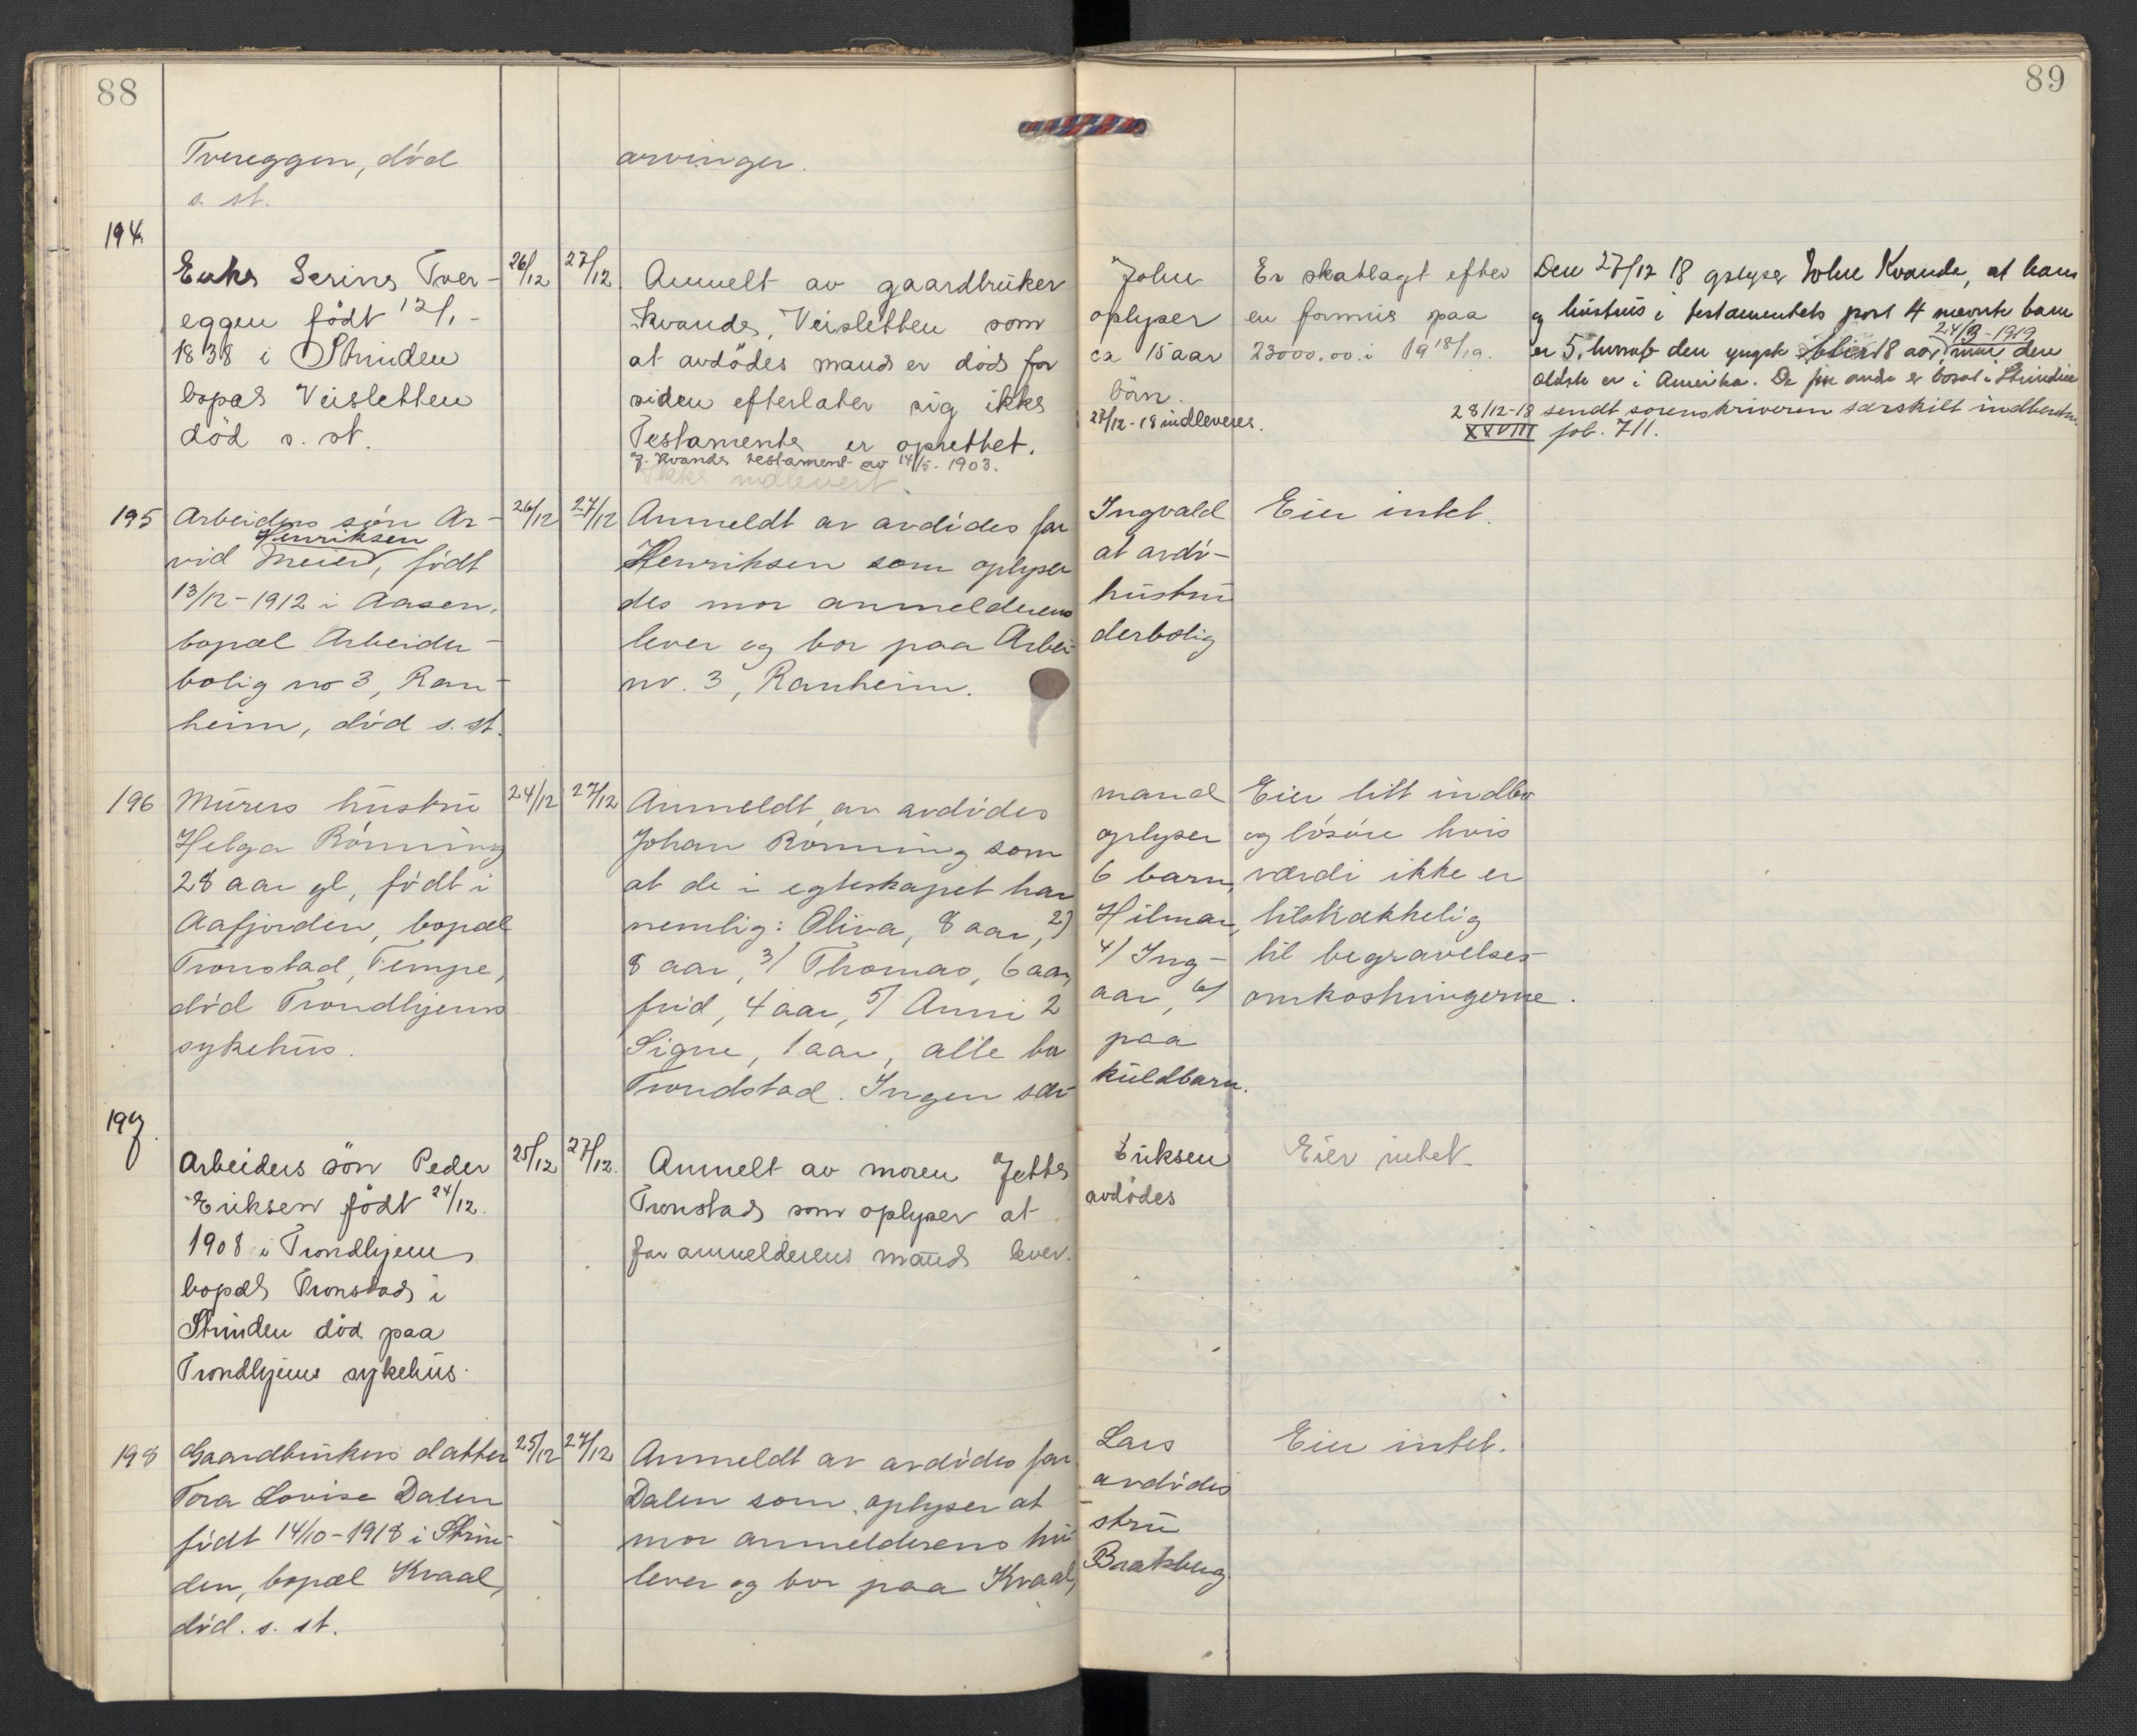 88
89
Tvereggen, död
s. st.
arvinger.
194.
Enke Serine Tver-
eggen födt 12/1-
1838 i Strinden
bopæl Veisletten
död s. st.
26/12
27/12
Anmelt av gaardbruker John
Kvande, Veisletten som oplyser
at avdödes mand er död for ca 15 aar
siden efterlater sig ikke börn.
Testamente er oprettet. 27/12-18 indleveres.
Kvande testament av 14/5. 1903.
Ikke indlevert
Er skatlagt efter
en formue paa
23000.00 i 1918/19.
Den 27/12 18 oplyser John Kvande, at ham
og hustrus i testamentets post 4 nævnte barn
er 5, hvorav den yngste blir 18 aar 24/3-1919 den
ældste er i Amerika. De andre er bosat i Strinden
28/12-18 sendt sorenskriveren særskilt indberetn.
XXVIII fol. 711.
195
Arbeiders sön Ar-
Henriksen
vid Meier, födt
13/12-1912 i Aasen,
bopæl Arbeider-
bolig no 3, Ran-
heim, död s. st.
26/12
27/12
Anmeldt av avdödes far Ingvald
Henriksen som oplyser at avdö-
des mor anmelderens hustru
lever og bor paa Arbei- derbolig
nr. 3, Ranheim.
Eier intet.
196
Murers hustru
Helga Rönning
28 aar gl, födt i
Aafjorden, bopæl
Tronstad, Tempe,
död Trondhjems
sykehus.
24/12
27/12
Anmeldt av avdödes mand
Johan Rönning som oplyser
at de i egteskapet har 6 barn,
nemlig: Oliva, 8 aar, 2) Hilmar,
8 aar, 3/ Thomas, 6 aar, 4/ Ing-
frid, 4 aar, 5/ Anni 2 aar, 6/
Signe, 1 aar, alle bor paa
Trondstad. Ingen sær- kuldbarn.
Eier litt indbo
og lösöre hvis
værdi ikke er
tilstrækkelig
til begravelses-
omkostningerne.
197.
Arbeiders sön Peder
Eriksen födt 24/12.
1908 i Trondhjem
bopæl Tronstad i
Strinden död paa
Trondhjems sykehus.
25/12
27/12.
Anmelt av moren Jette Eriksen
Tronstad som oplyser at avdödes
far anmelderens mand lever.
Eier intet.
198
Gaardbrukers datter
Tora Lovise Dalen
födt 14/10-1918 i Strin-
den, bopæl Kvaal,
död. s. st.
25/12
27/12
Anmeldt av avdödes far Lars
Dalen som oplyser at avdödes
mor anmelderens hu- stru
lever og bor paa Kvaal, Bratsberg
Eier intet.